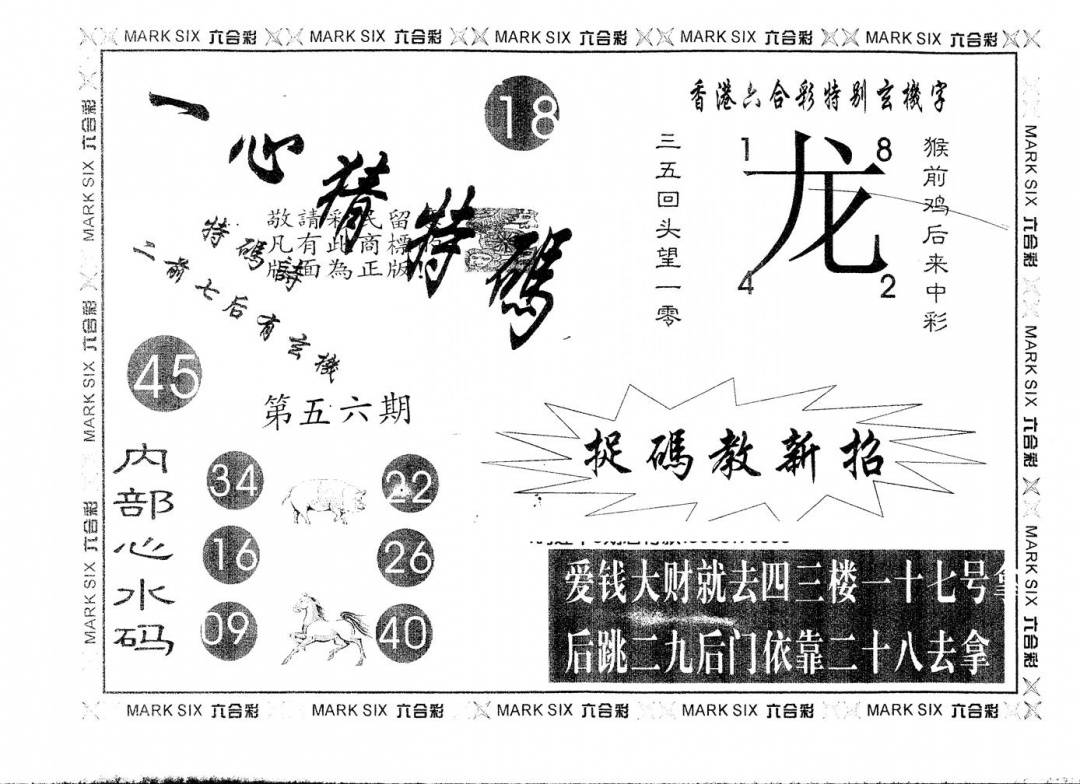 MARK SIX 六合彩 MARK SIX 六合彩 MARK SIX 六合彩 MARK SIX 六合彩 MARK SIX 六合彩
一心猜特碼
18
香港六合彩特别玄機字
三五回头望一零
1
8
龙
4
2
猴前鸡后来中彩
敬請彩民留
凡有此商標
版面為正版!
特碼詩
二前七后有玄機
45
第五六期
内部心水码
34
22
16
26
09
40
捉碼教新招
爱钱大财就去四三楼一十七号拿
后跳二九后门依靠二十八去拿
MARK SIX 六合彩 MARK SIX 六合彩 MARK SIX 六合彩
MARK SIX 六合彩 MARK SIX 六合彩 MARK SIX 六合彩
MARK SIX 六合彩 MARK SIX 六合彩 MARK SIX 六合彩 MARK SIX 六合彩 MARK SIX 六合彩